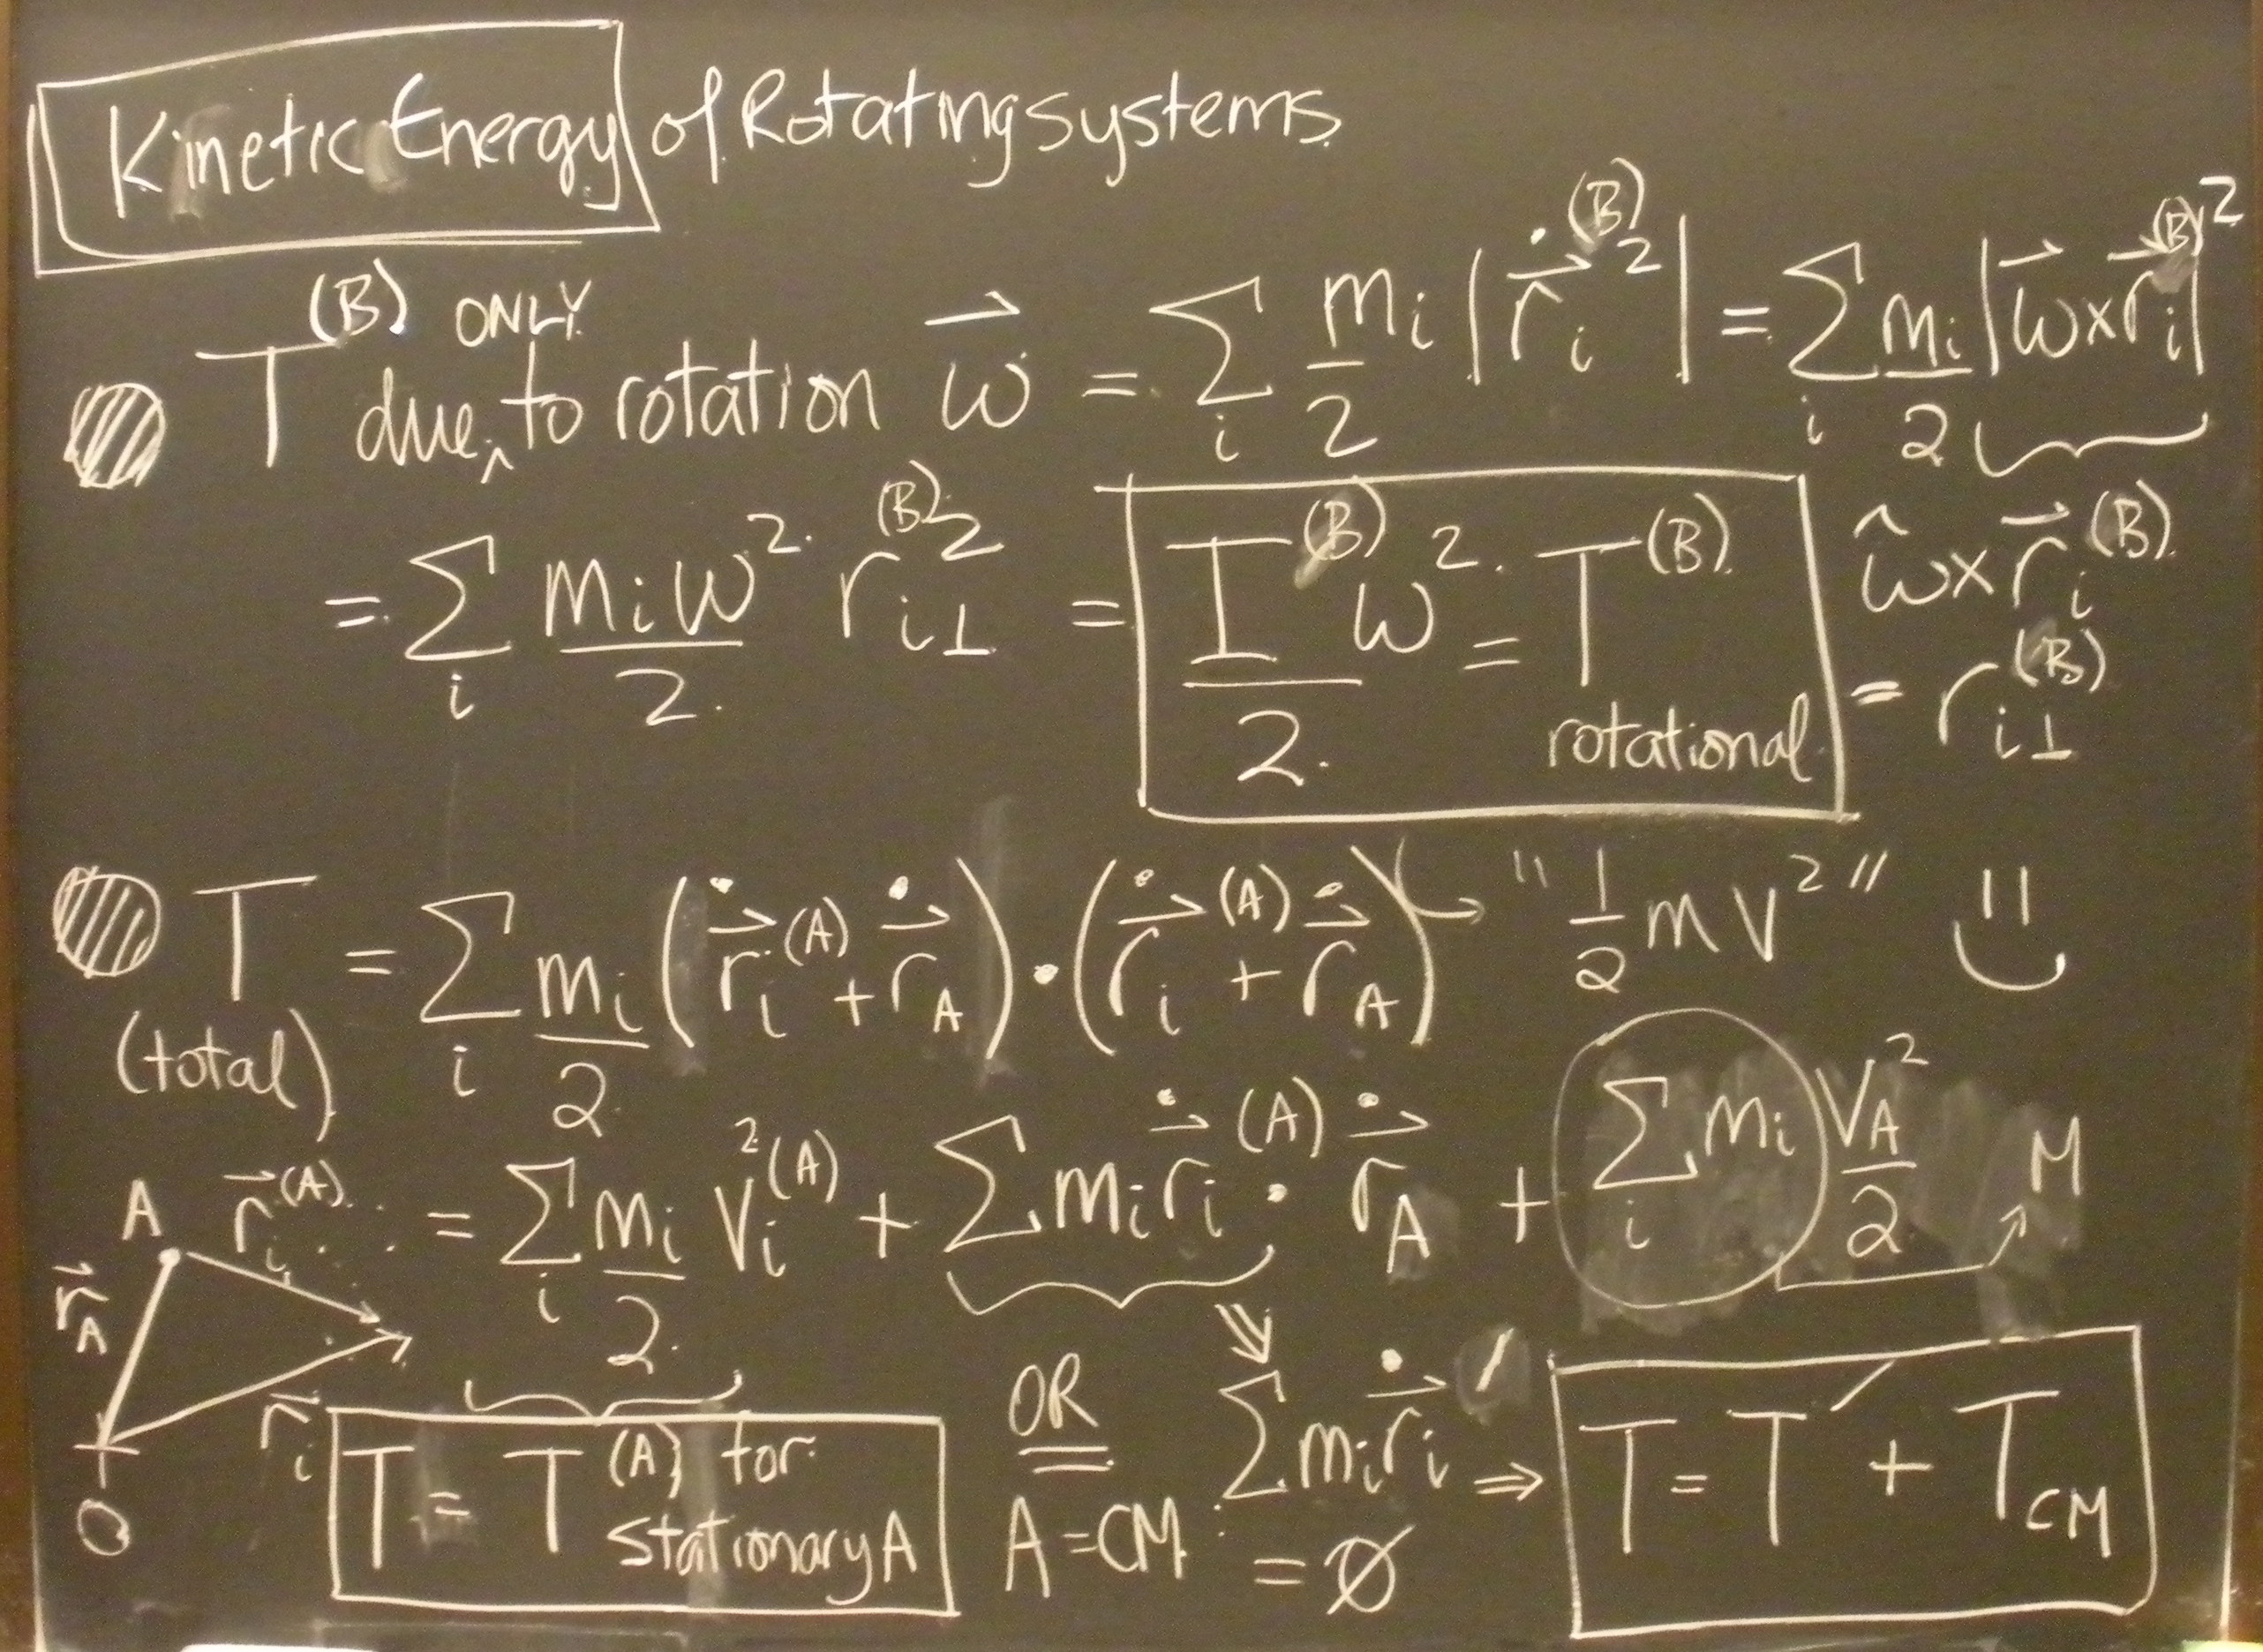 Kinetic Energy of Rotating systems
T^(B) due ONLY to rotation ω⃗ = Σ_i m_i/2 |ṙ⃗_i^(B)2| = Σ_i m_i/2 |ω⃗ × r⃗_i^(B)|²
= Σ_i m_i ω²/2 r_i⊥^(B)2 = I^(B)/2 ω² = T^(B) rotational
ω̂ × r⃗_i^(B)
= r_i⊥^(B)
T (total) = Σ_i m_i/2 (ṙ⃗_i^(A) + ṙ⃗_A) · (ṙ⃗_i^(A) + ṙ⃗_A) → "1/2 m v²"
= Σ_i m_i/2 v_i^2(A) + Σ m_i ṙ⃗_i^(A) · ṙ⃗_A + Σ_i m_i V_A²/2 M
A r⃗_i^(A)
r⃗_A
r⃗_i
O
T = T^(A) for stationary A
OR
A = CM
Σ m_i ṙ⃗_i′ = Ø
⇒ T = T′ + T_CM